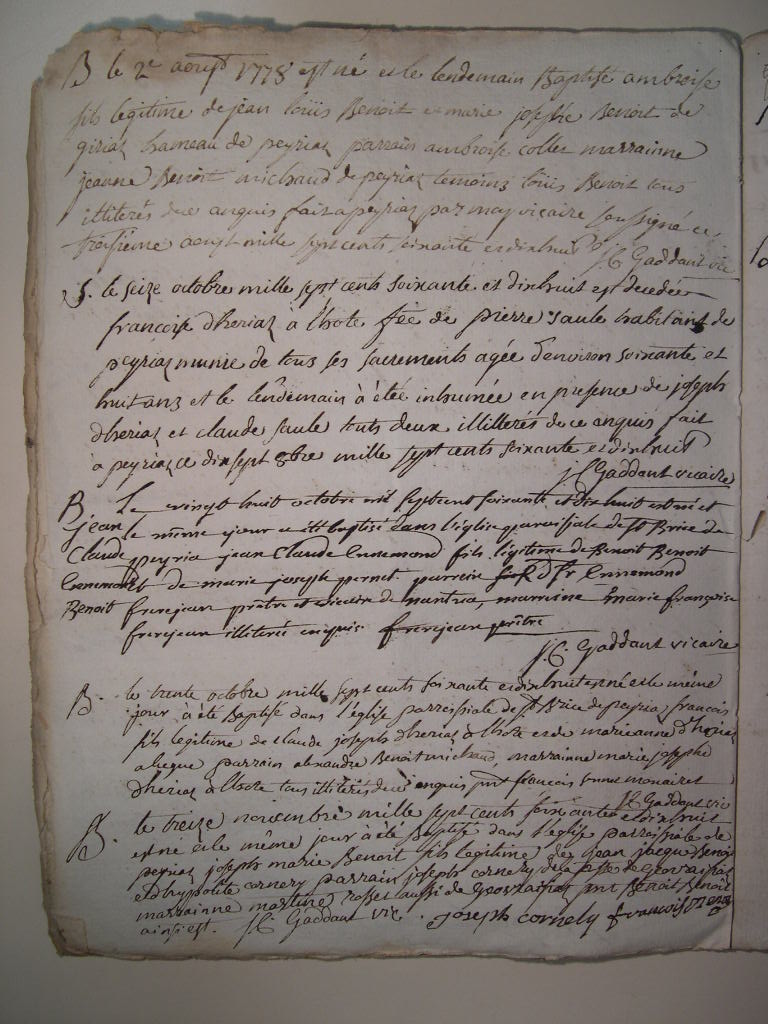 B le 2e aoust 1778 est né et le lendemain Baptisé ambroise
fils legitime de jean loüis Benoit et marie josephe Benoit de
giriaz hameau de peyriaz parrain ambroise collet marrainne
jeanne Benoit michaud de peyriaz temoins loüis Benoit tous
illiterés de ce anquis fait a peyriaz par moy vicaire soussigné ce
troisieme aoust mille sept cents soixante et dixhuit J.C. Gaddant vic
S. le seize octobre mille sept cents soixante et dixhuit est decedée
francoise dheriaz à l'hote fée de pierre saule habitant de
peyriaz munie de tous ses sacrements agée d'environ soixante et
huit ans et le lendemain à étée inhumée en presence de joseph
dheriaz et claude saule touts deux illiterés de ce anquis fait
à peyriaz ce dix sept 8bre mille sept cents soixante et dixhuit
J.C. Gaddant vicaire
B Le vingt huit octobre mil sept cent soixante et dix huit est né et
jean le même jour a été baptisé dans l'église parroissiale de St Brice de
Claude peyria jean Claude Ennemond fils légitime de Benoit Benoit
Ennemond et de marie joseph pernet. parrein fr Ennemond
Benoit frerejean prêtre et vicaire de nantua, marreine marie françoise
frerejean illiterée enquis frerejean prêtre
J.C. Gaddant vicaire
B. le trente octobre mille sept cents soixante et dixhuit est né et le même
jour à été Baptisé dans l'église parroissiale de St Brice de peyria francois
fils legitime de claude joseph dheriaz à l'hote et de marianne dheriaz
parrain alexandre Benoit michaud, marrainne marie josephe
dheriaz à l'hote tous illiterés de ce anquis pnt francois
J.C. Gaddant vic
B. le treize novembre mille sept cents soixante et dixhuit
est né et le même jour à été Baptisé dans l'eglise parroissiale de
peyriaz joseph marie Benoit fils legitime de jean jacque Benoit
et d'hypolite cornery parrain joseph cornery de
marrainne martine rosset aussi de pnt Benoit Benoit
ainsi est. J.C. Gaddant vic. joseph cornely francois